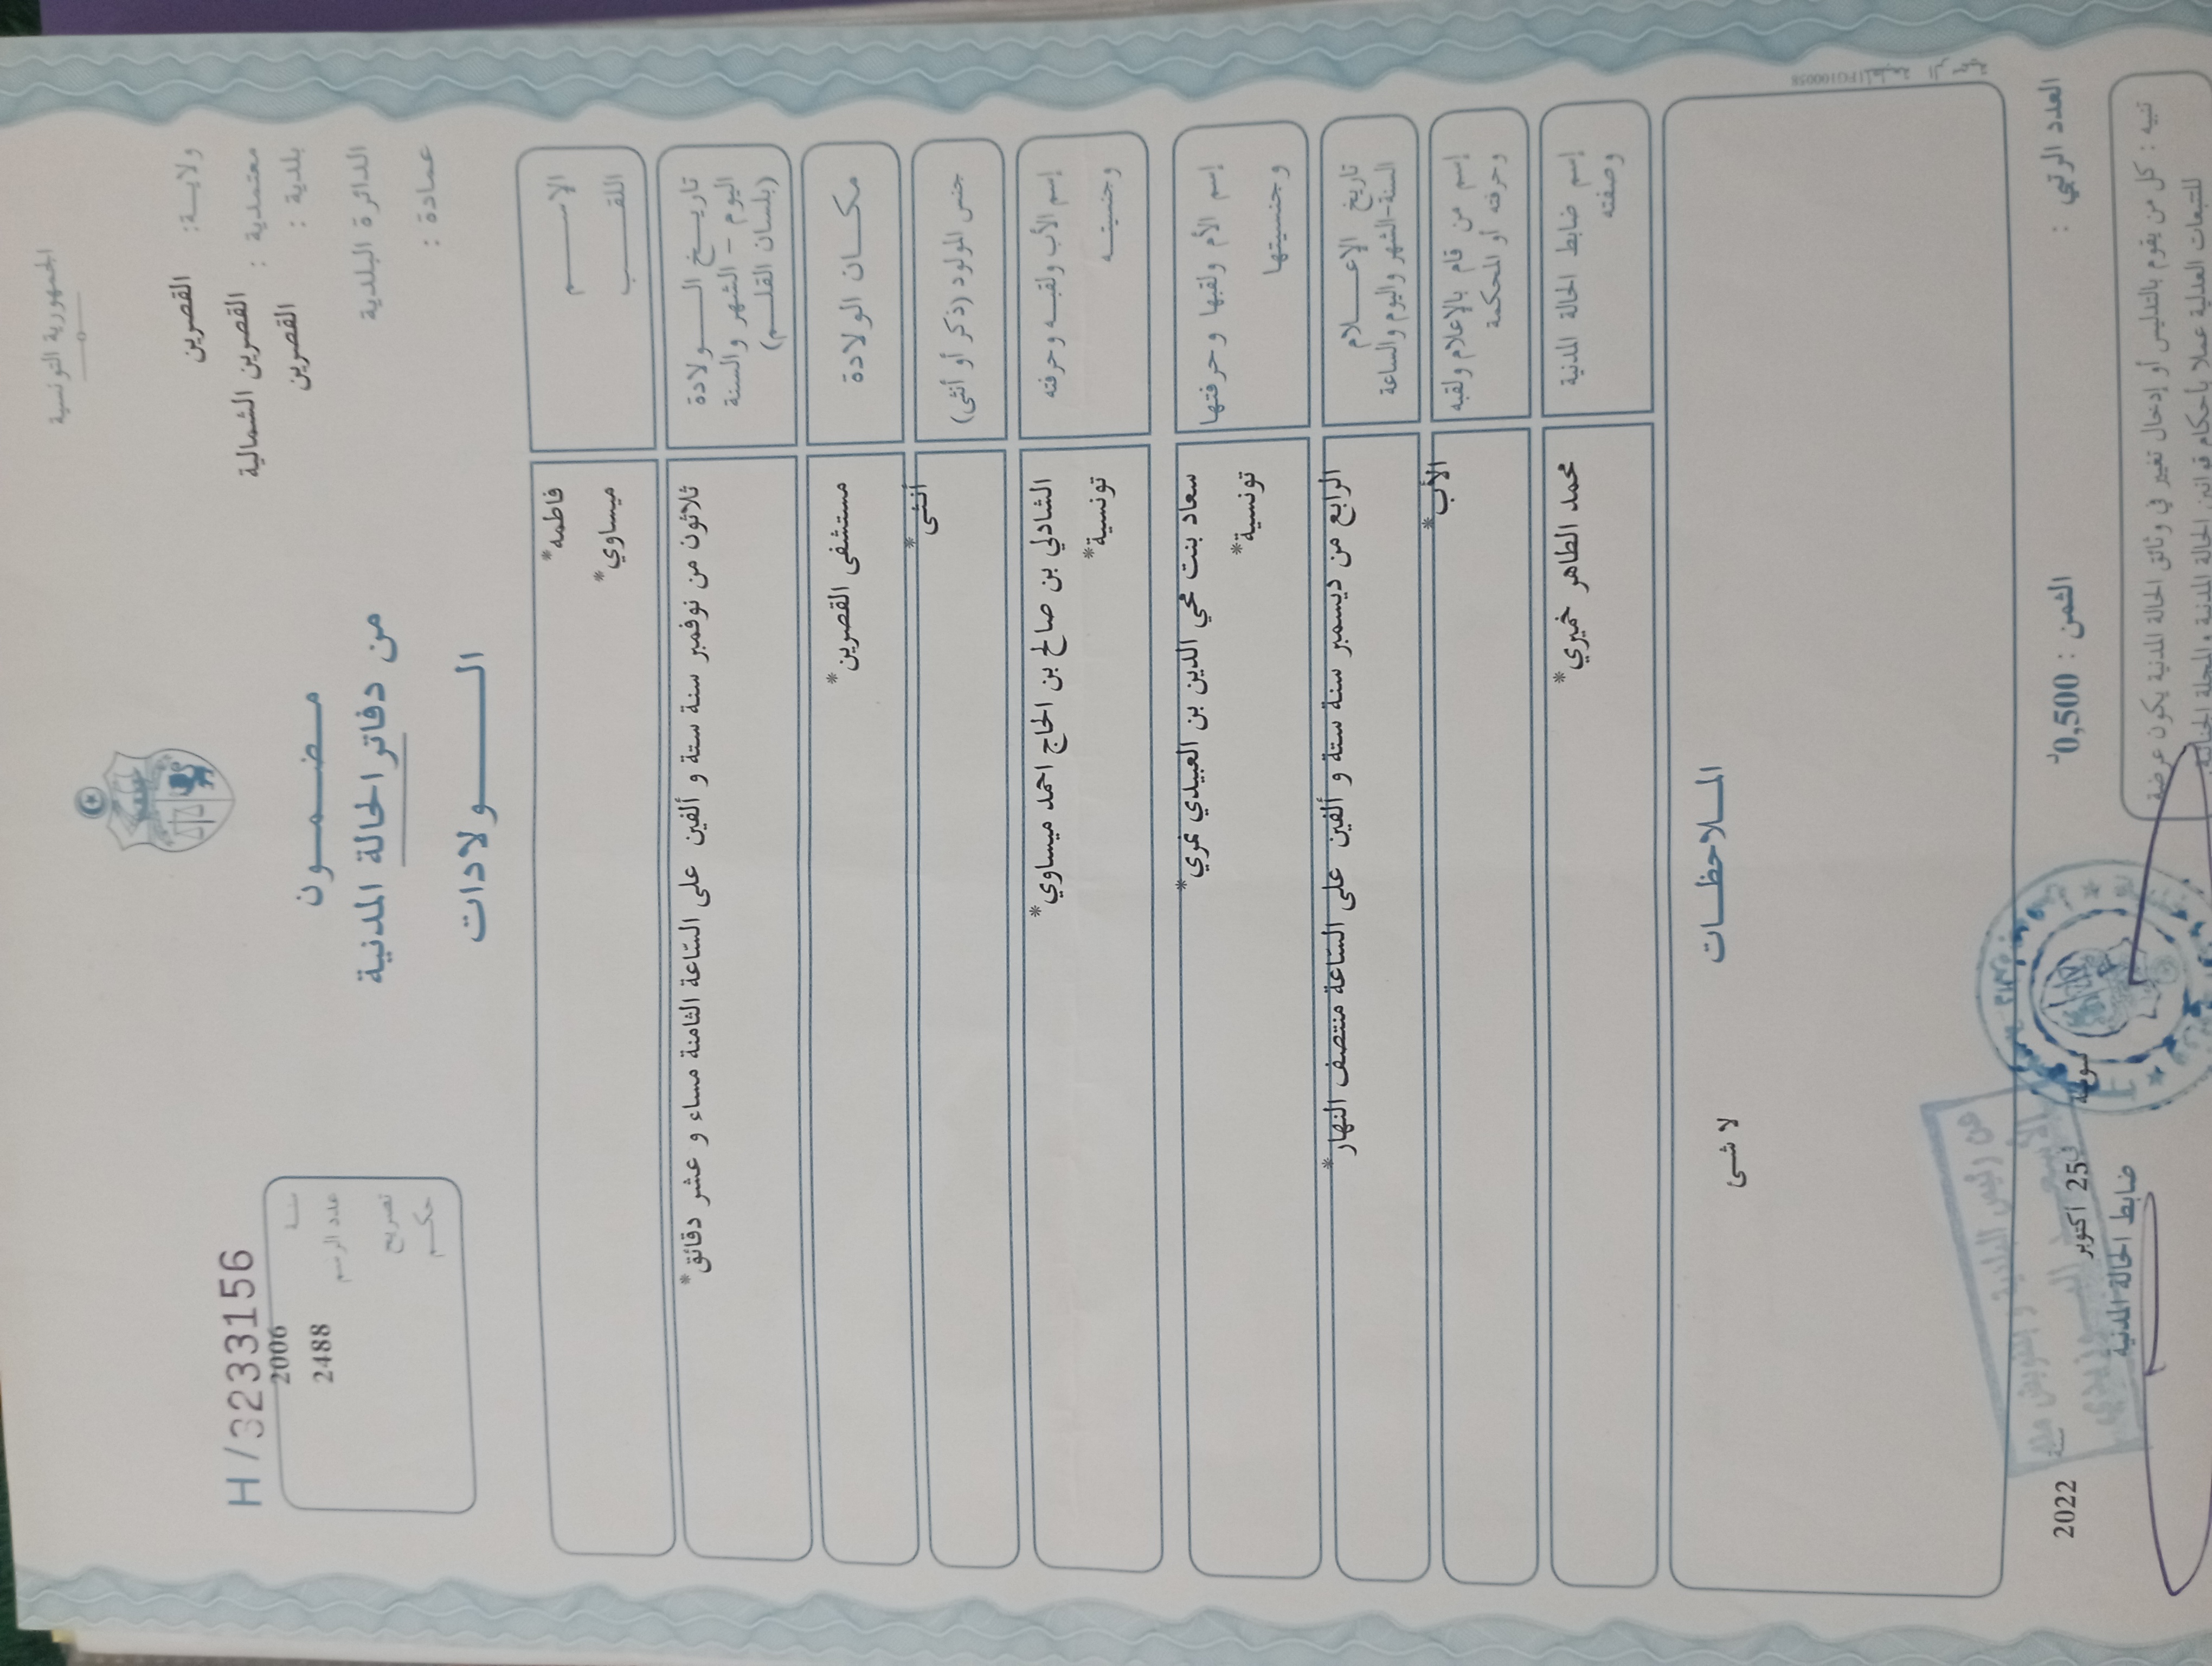 الجمهورية التونسية
ولاية: القصرين
معتمدية : القصرين الشمالية
بلدية : القصرين
الدائرة البلدية
عمادة :
مضمون
من دفاتر الحالة المدنية
الولادات
H/3233156
سنة 2006
عدد الرسم 2488
تصريح
حكم
الاسم فاطمه*
اللقب ميساوي*
تاريخ الولادة
اليوم - الشهر والسنة
(بلسان القلم)
ثلاثون من نوفمبر سنة ستة و ألفين على السّاعة الثامنة مساء و عشر دقائق*
مكان الولادة مستشفى القصرين*
جنس المولود (ذكر أو أنثى) أنثى*
إسم الأب ولقبه وحرفته الشاذلي بن صالح بن الحاج احمد ميساوي*
وجنسيته تونسية*
إسم الأم ولقبها وحرفتها سعاد بنت محي الدين بن العبيدي عمري*
وجنسيتها تونسية*
تاريخ الإعلام
السنة-الشهر واليوم والساعة
الرابع من ديسمبر سنة ستة و ألفين على السّاعة منتصف النهار*
إسم من قام بالإعلام ولقبه
وحرفته أو المحكمة
الأب*
إسم ضابط الحالة المدنية
وصفته
محمد الطاهر خميري*
الملاحظات
لا شى
العدد الرتبي :
الثمن : 0,500د
سوسة في 25 اكتوبر سنة 2022
ضابط الحالة المدنية
تنبيه : كل من يقوم بالتدليس أو إدخال تغيير في وثائق الحالة المدنية يكون عرضة
للتبعات العدلية عملا بأحكام قوانين الحالة المدنية والمجلة الجنائية